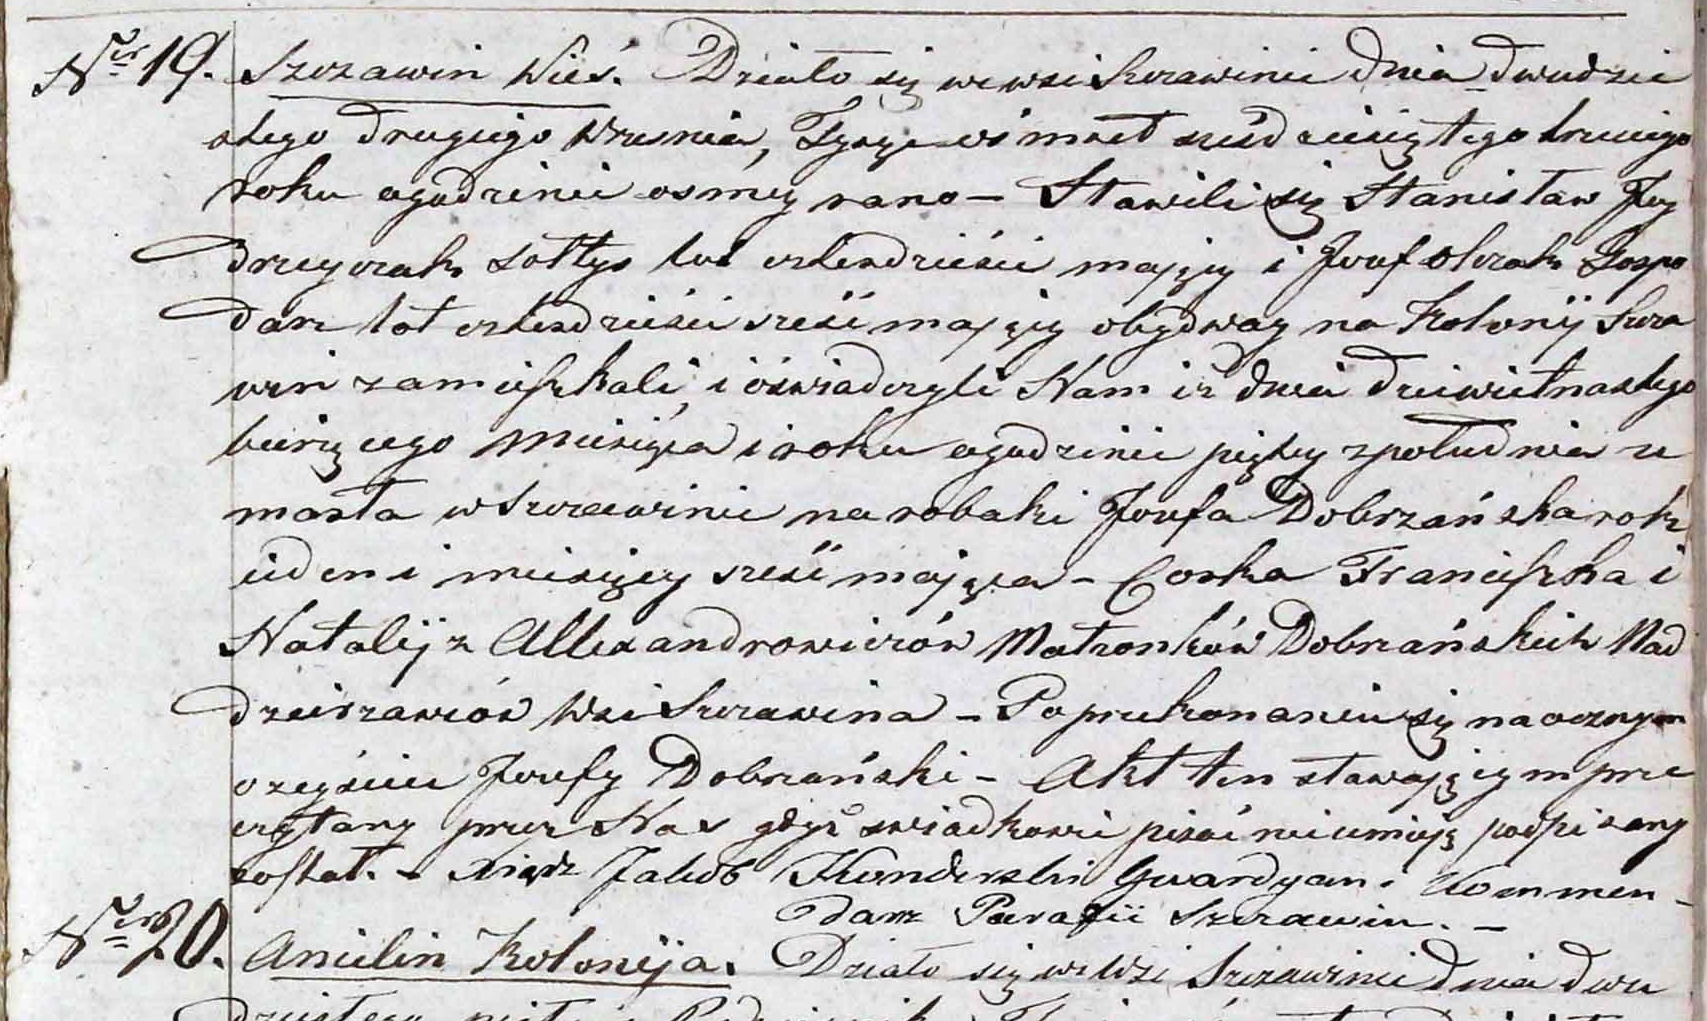 Nro 19. Szczawin Wieś. Działo się we wsi Szczawinie dnia dwudzie
stego drugiego Wrzesnia, Tysiąc ośmset sześdziesiątego trzeciego
roku o godzinie osmey rano – Stawili się Stanisław Ję
drzeyczak Sołtys lat czterdzieści maiący i Jozef Olczak Gospo
darz lat czterdzieści sześć maiący obydway na Kolonÿ Szcza
win zamieszkali, i oświadczyli Nam iż dnia dziewietnastego
bieżącego Miesiąca i roku o godzinie piątey z południa u
marła w Szczawinie na robaki Jozefa Dobrzańska rok
ieden i miesięcy sześć maiąca – Corka Franciszka i
Natalÿ z Allexandrowiczów Małzonków Dobrzańskich Nad
dzierzawców Wsi Szczawina – Po przekonaniu się naocznym
o zeyściu Jozefy Dobrzański – Akt ten stawaiącym prze
czytany przez Nas gdyż swiadkowie pisać nieumieią podpisany
został. – Xiądz Jakób Gwardyan. Kommen-
darz Parafii Szczawin. –
Nro 20. Anielin Kolonÿa. Działo się we Wsi Szczawinie dnia dwu